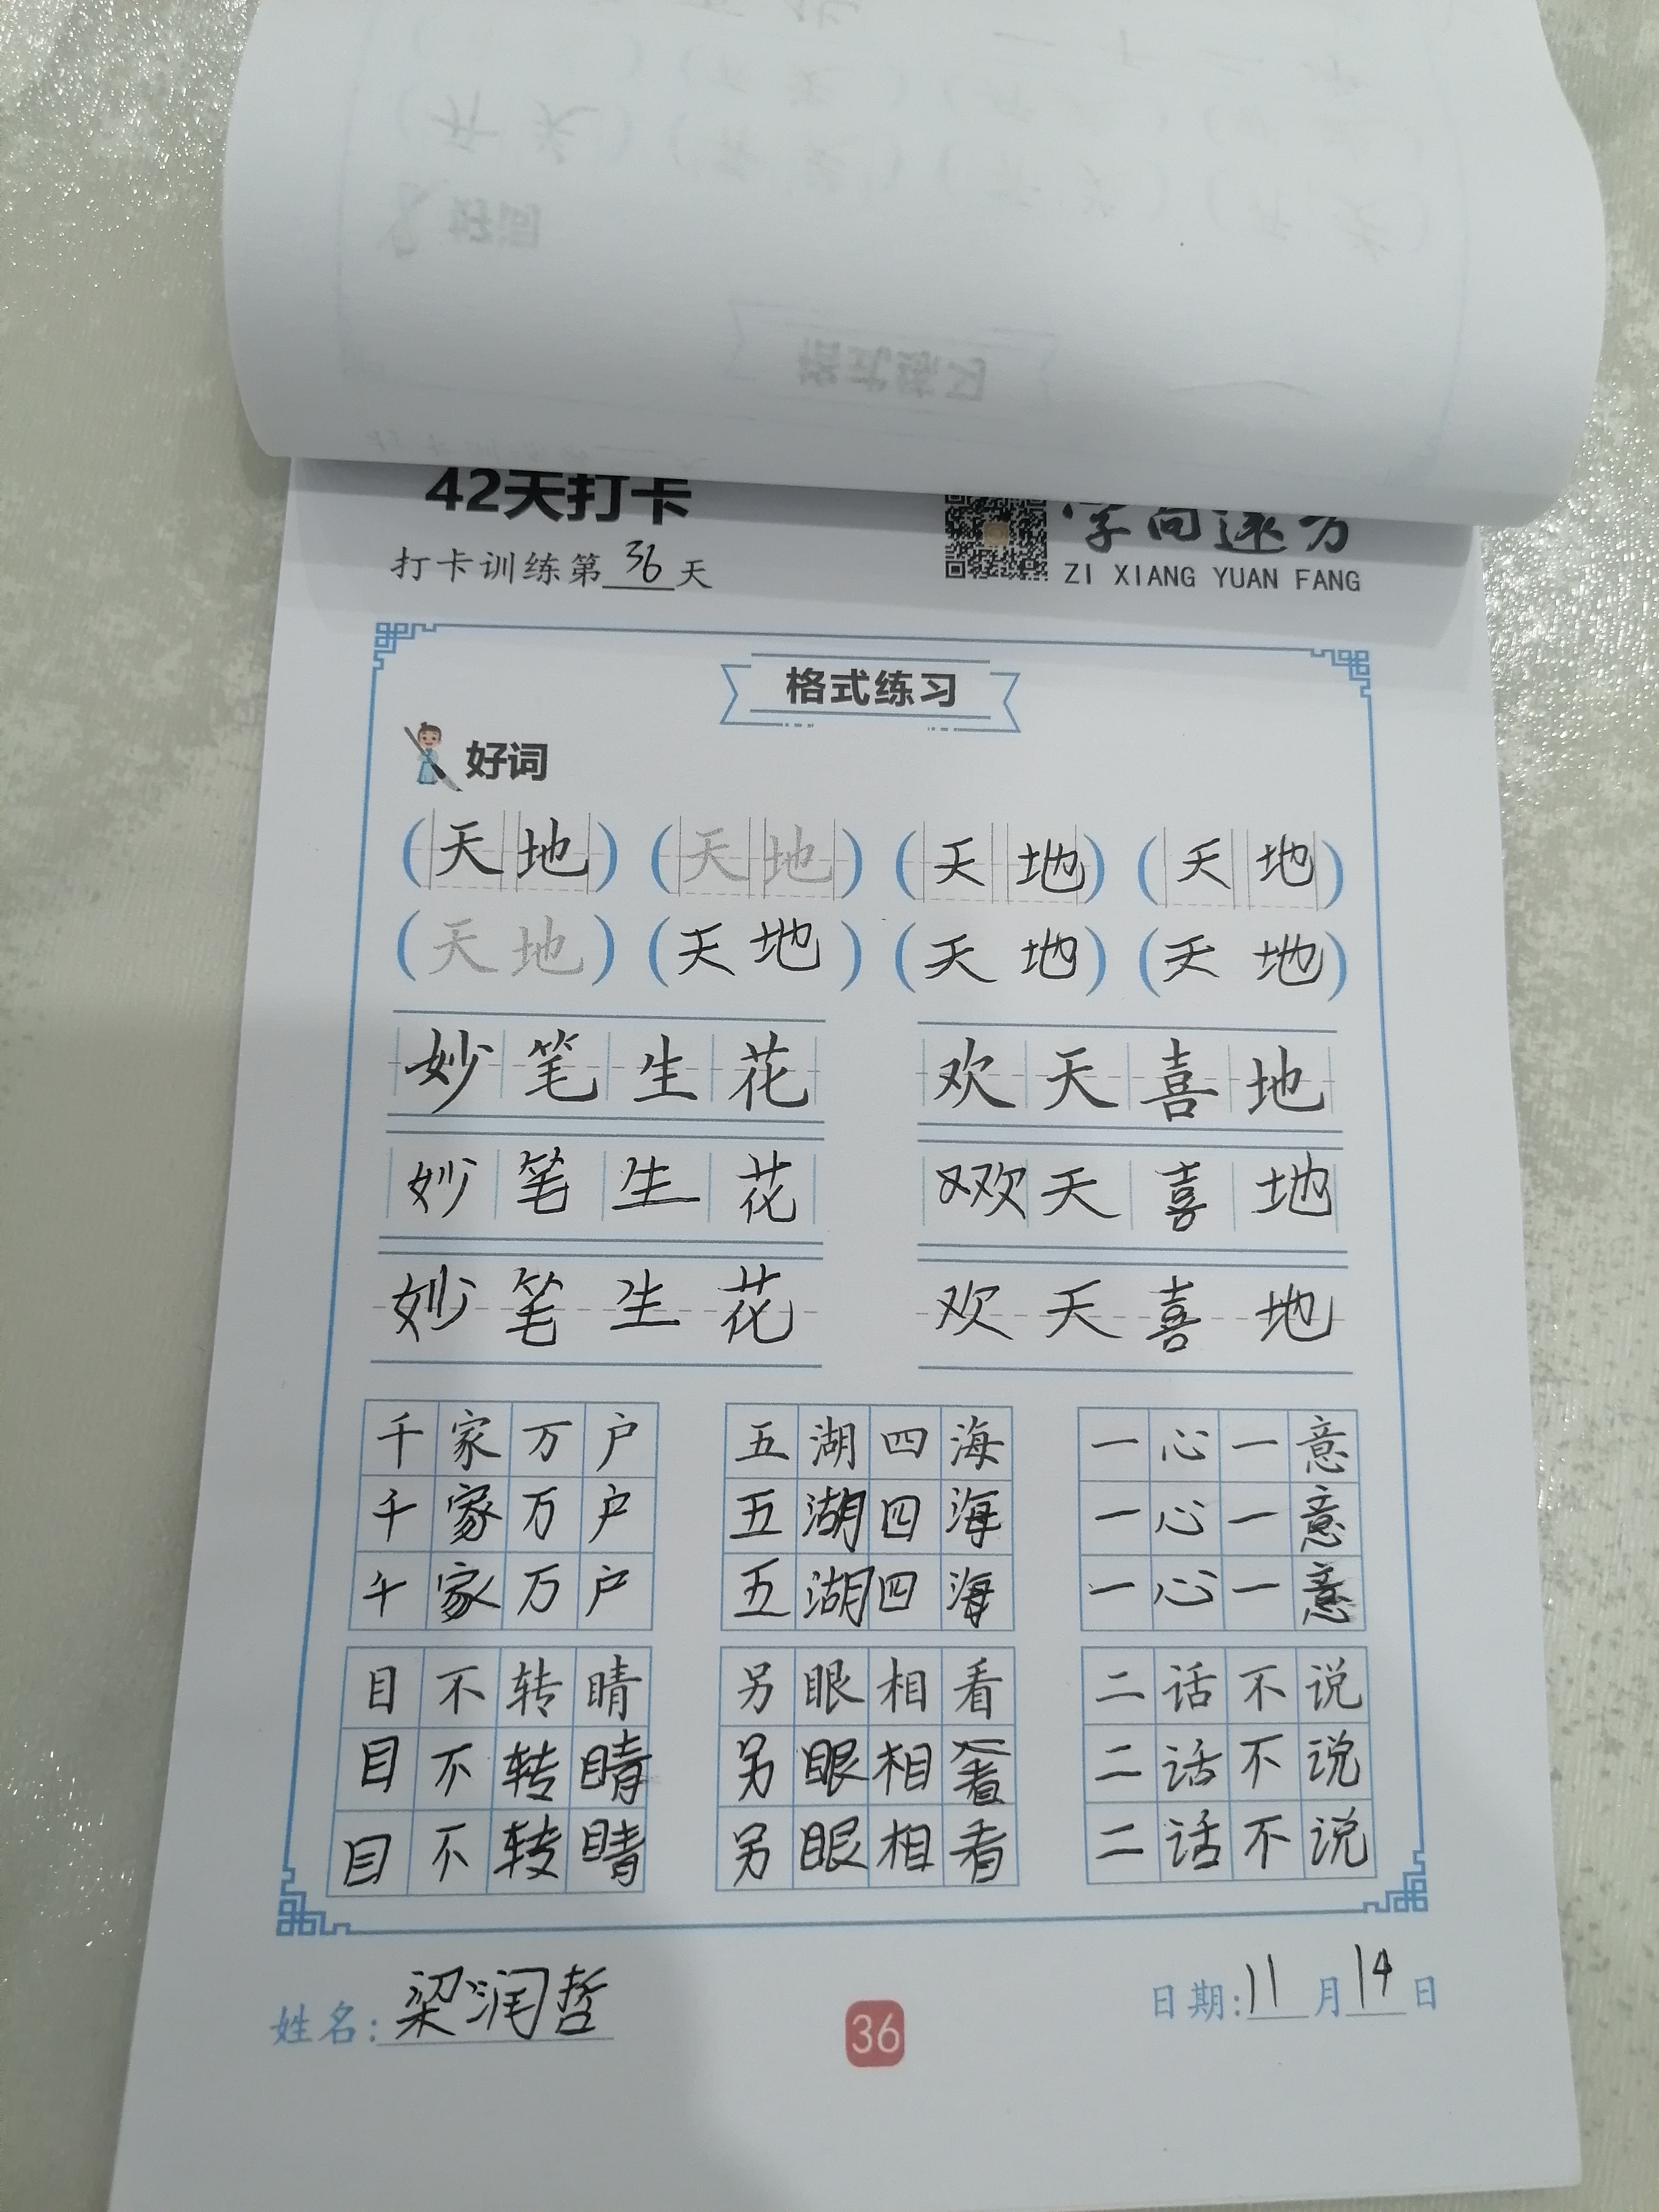 42天打卡
字向远方
打卡训练第36天
ZI XIANG YUAN FANG
格式练习
好词
(天地) (天地) (天地) (天地)
(天地) (天地) (天地) (天地)
妙笔生花 欢天喜地
妙笔生花 欢天喜地
妙笔生花 欢天喜地
千家万户 五湖四海 一心一意
千家万户 五湖四海 一心一意
千家万户 五湖四海 一心一意
目不转睛 另眼相看 二话不说
目不转睛 另眼相看 二话不说
目不转睛 另眼相看 二话不说
姓名:梁润哲 36 日期:11月14日